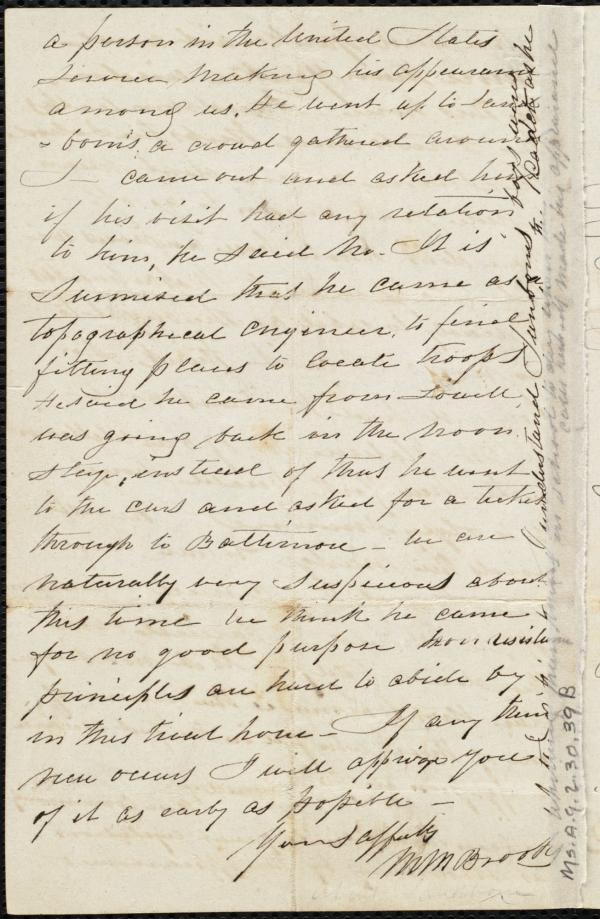 a person in the United States
Service making his appearance
among us. He went up to San
-borns, a crowd gathered around
S— came out and asked him
if his visit had any relation
to him, he said no. It is
surmised that he came as
topographical engineer, to find
fitting places to locate troops
He said he came from Lowell,
was going back in the noon
stage, instead of that he went
to the cars and asked for a ticket
through to Baltimore – We are
naturally very suspicious about
this time we think he came
for no good purpose non resistant
principles are hard to abide by
in this trial hour – If any thing
new occurs I will apprize you
of it as early as possible –
Yours affectly
M M Brooks
I understand Sanborns
Ms.A.9.2.30.39B